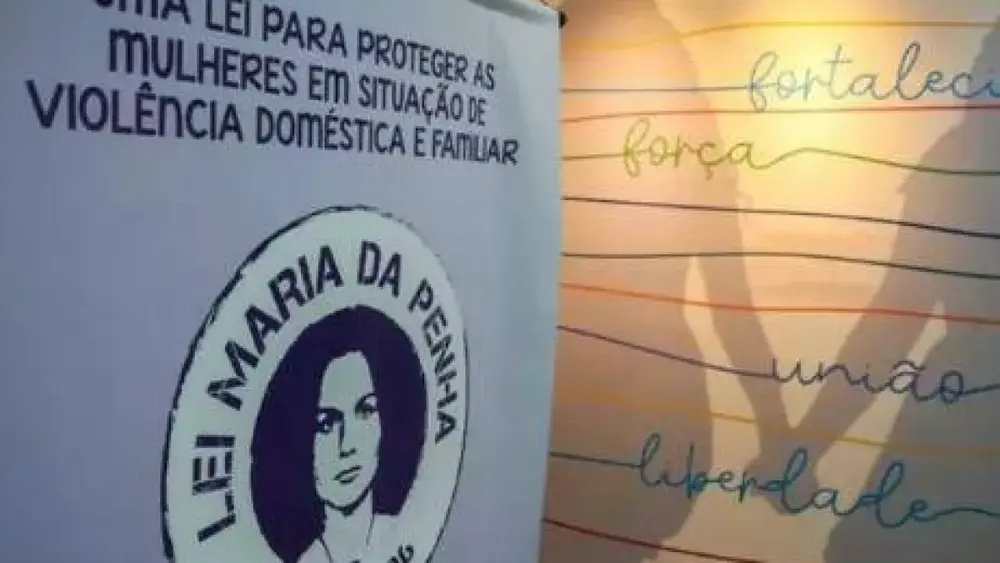 LEI PARA PROTEGER AS
MULHERES EM SITUAÇÃO DE
VIOLÊNCIA DOMÉSTICA E FAMILIAR
LEI MARIA DA PENHA
força
união
liberdade